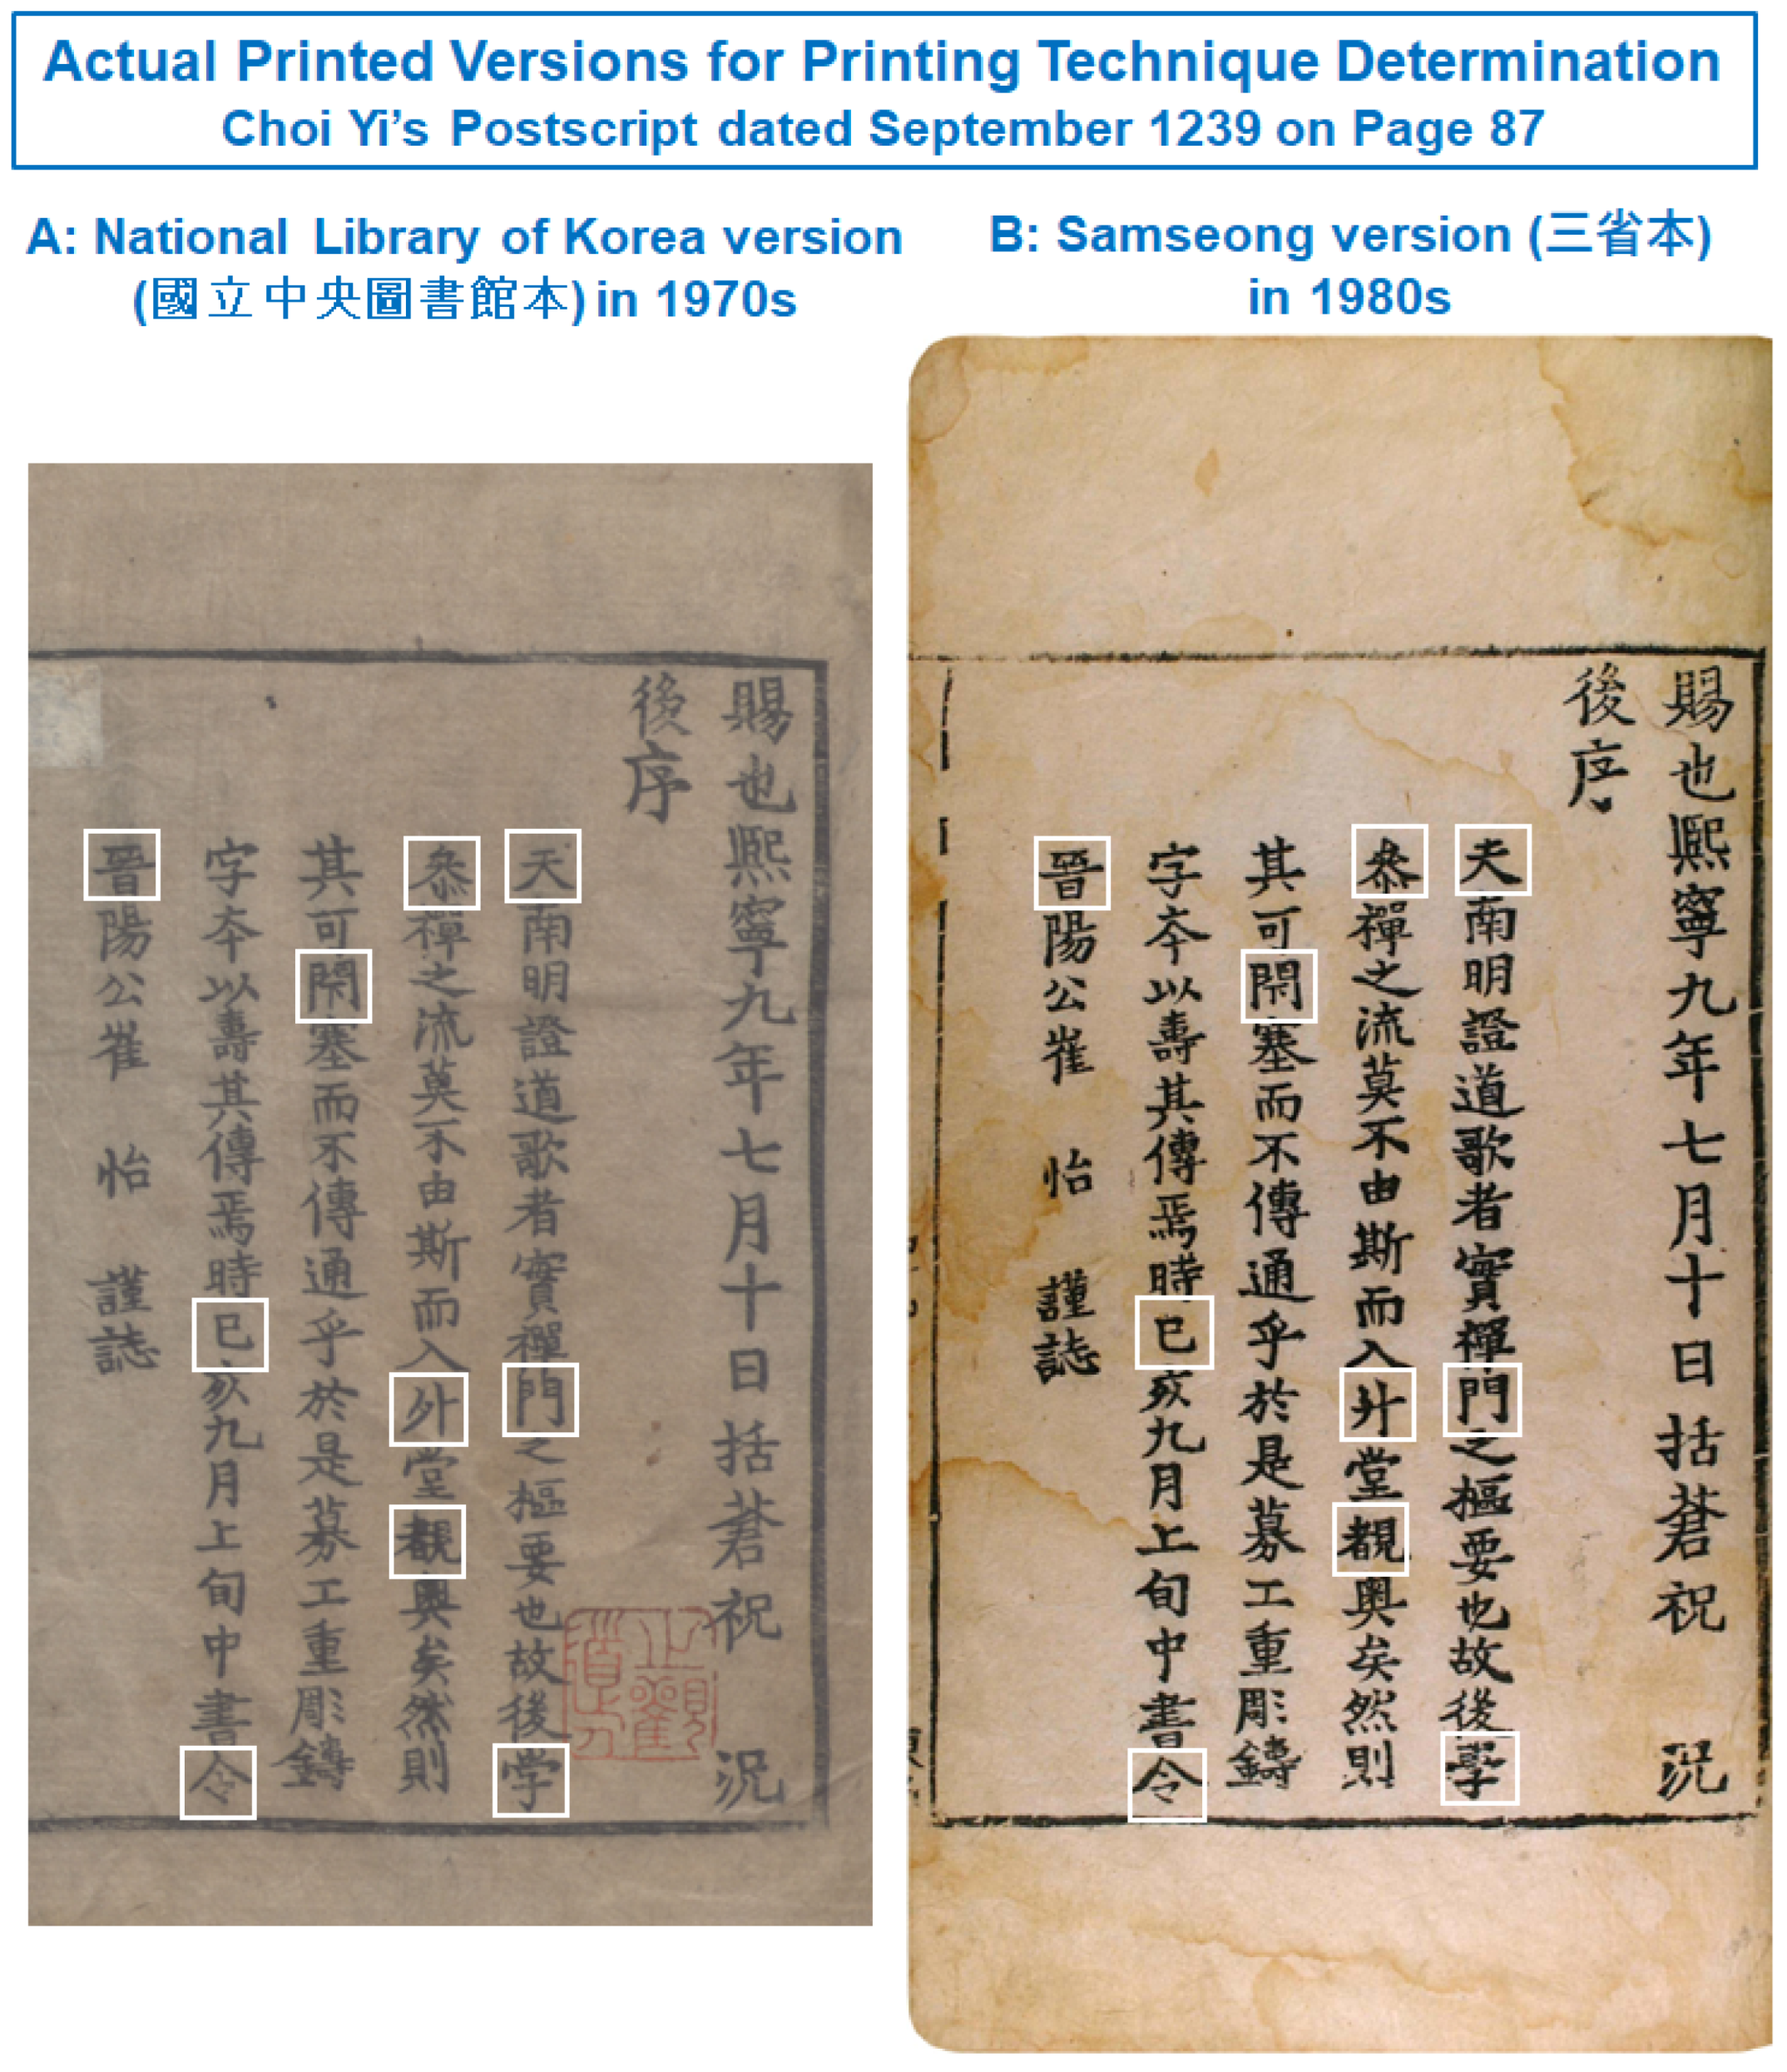 Actual Printed Versions for Printing Technique Determination
Choi Yi’s Postscript dated September 1239 on Page 87
A: National Library of Korea version
(國立中央圖書館本) in 1970s
賜也熙寧九年七月十日括蒼祝 況
後序
天南明證道歌者實禪門之樞要也故後学
叅禪之流莫不由斯而入外堂覩奧矣然則
其可閇塞而不傳通乎於是募工重彫鑄
字夲以壽其傳焉時巳亥九月上旬中書令
晉陽公崔 怡 謹誌
B: Samseong version (三省本)
in 1980s
賜也熙寧九年七月十日括蒼祝 況
後序
夫南明證道歌者實禪門之樞要也故後斈
叅禪之流莫不由斯而入升堂覩奧矣然則
其可閇塞而不傳通乎於是募工重彫鑄
字夲以壽其傳焉時巳亥九月上旬中書令
晉陽公崔 怡 謹誌